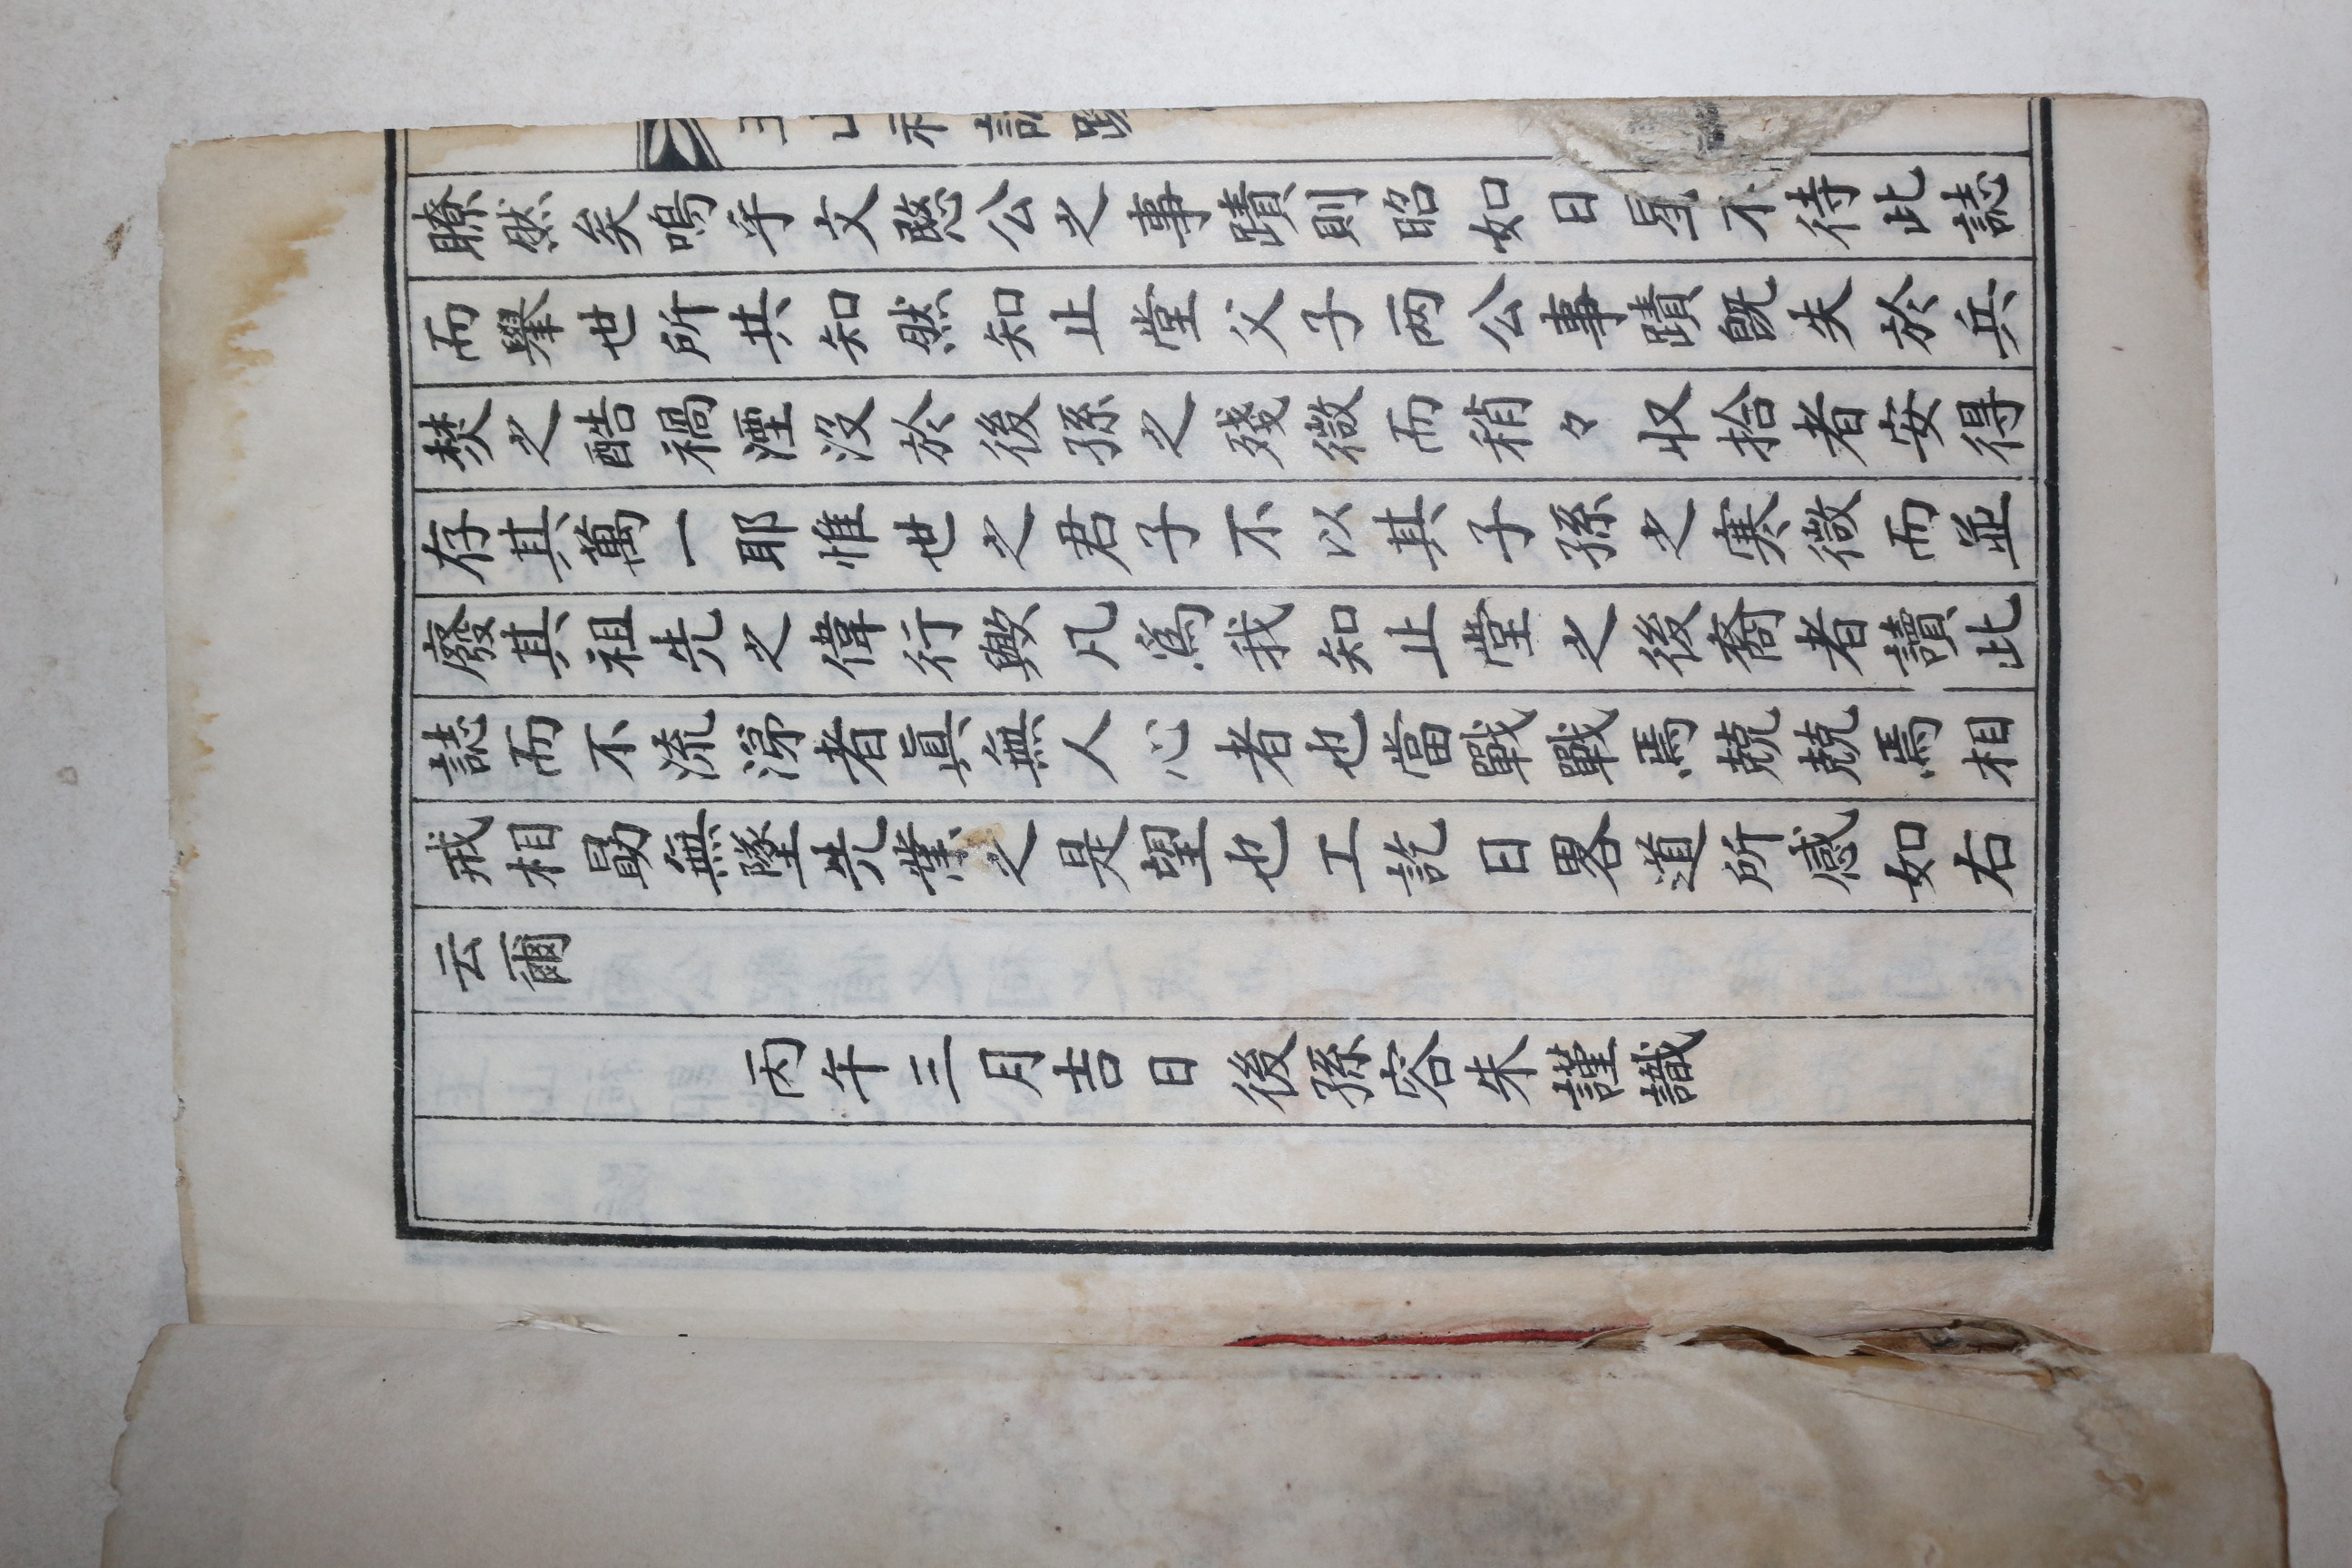 瞭然矣嗚乎文愍公之事蹟則昭如日星不待此誌
而擧世所共知然知止堂父子兩公事蹟旣失於兵
焚之酷禍湮沒於後孫之殘微而稍々收拾者安得
存其萬一耶惟世之君子不以其子孫之寒微而並
廢其祖先之偉行歟凡爲我知止堂之後裔者讀此
誌而不流涕者眞無人心者也當戰戰焉兢兢焉相
戒相勗無墜先業之是望也工訖日畧道所感如右
云爾
丙午三月吉日後孫容朱謹識